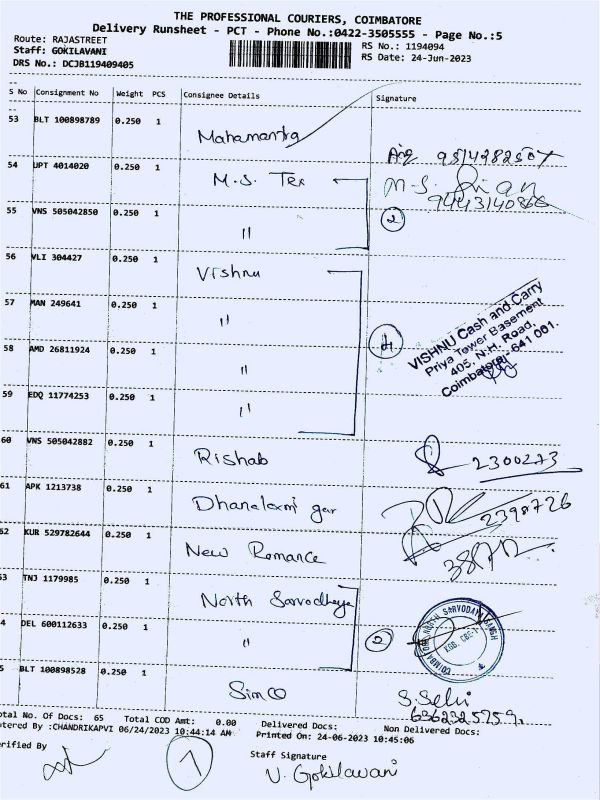 THE PROFESSIONAL COURIERS, COIMBATORE
Delivery Runsheet - PCT - Phone No.:0422-3505555 - Page No.:5
Route: RAJASTREET
RS No.: 1194094
Staff: GOKILAVANI
RS Date: 24-Jun-2023
DRS No.: DCJB119409405
S No Consignment No Weight PCS Consignee Details Signature
53 BLT 100898789 0.250 1
Mahamantra
9514282507
54 UPT 4014020 0.250 1
M.S. Tex
M.S.
9443140866
55 VNS 505042850 0.250 1
2
"
56 VLI 304427 0.250 1
Vishnu
57 MAN 249641 0.250 1
"
4
VISHNU Cash and Carry
Priya Tower Basement
405, N.H. Road,
Coimbatore - 641 001.
58 AMD 26811924 0.250 1
"
59 EDQ 11774253 0.250 1
"
60 VNS 505042882 0.250 1
Rishab
2300273
61 APK 1213738 0.250 1
Dhanalaxmi gar
2398726
62 KUR 529782644 0.250 1
New Romance
3872
63 TNJ 1179985 0.250 1
North Sarvodhaya
4 DEL 600112633 0.250 1
"
2
COIMBATORE NORTH SARVODAYA SANGH
5 BLT 100898528 0.250 1
Simco
S. Selvi
otal No. Of Docs: 65 Total COD Amt: 0.00 Delivered Docs: Non Delivered Docs:
tered By :CHANDRIKAPVI 06/24/2023 10:44:14 AM Printed On: 24-06-2023 10:45:06
erified By
7
Staff Signature
V. Gokilavani